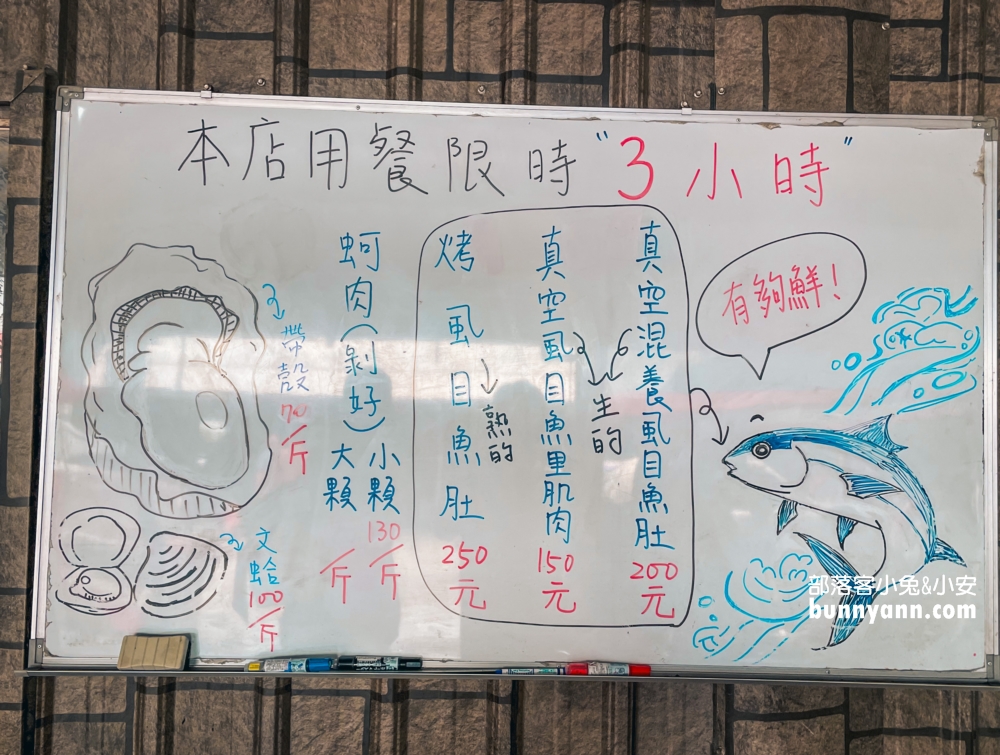 本店用餐限時"3小時"
有夠鮮!
真空混養虱目魚肚
200元
生的
真空虱目魚里肌肉
150元
烤虱目魚肚
250元
熟的
蚵肉(剝好)
小顆
130/斤
大顆
/斤
帶殼
70/斤
文蛤
100/斤
部落客小兔&小安
bunnyann.com